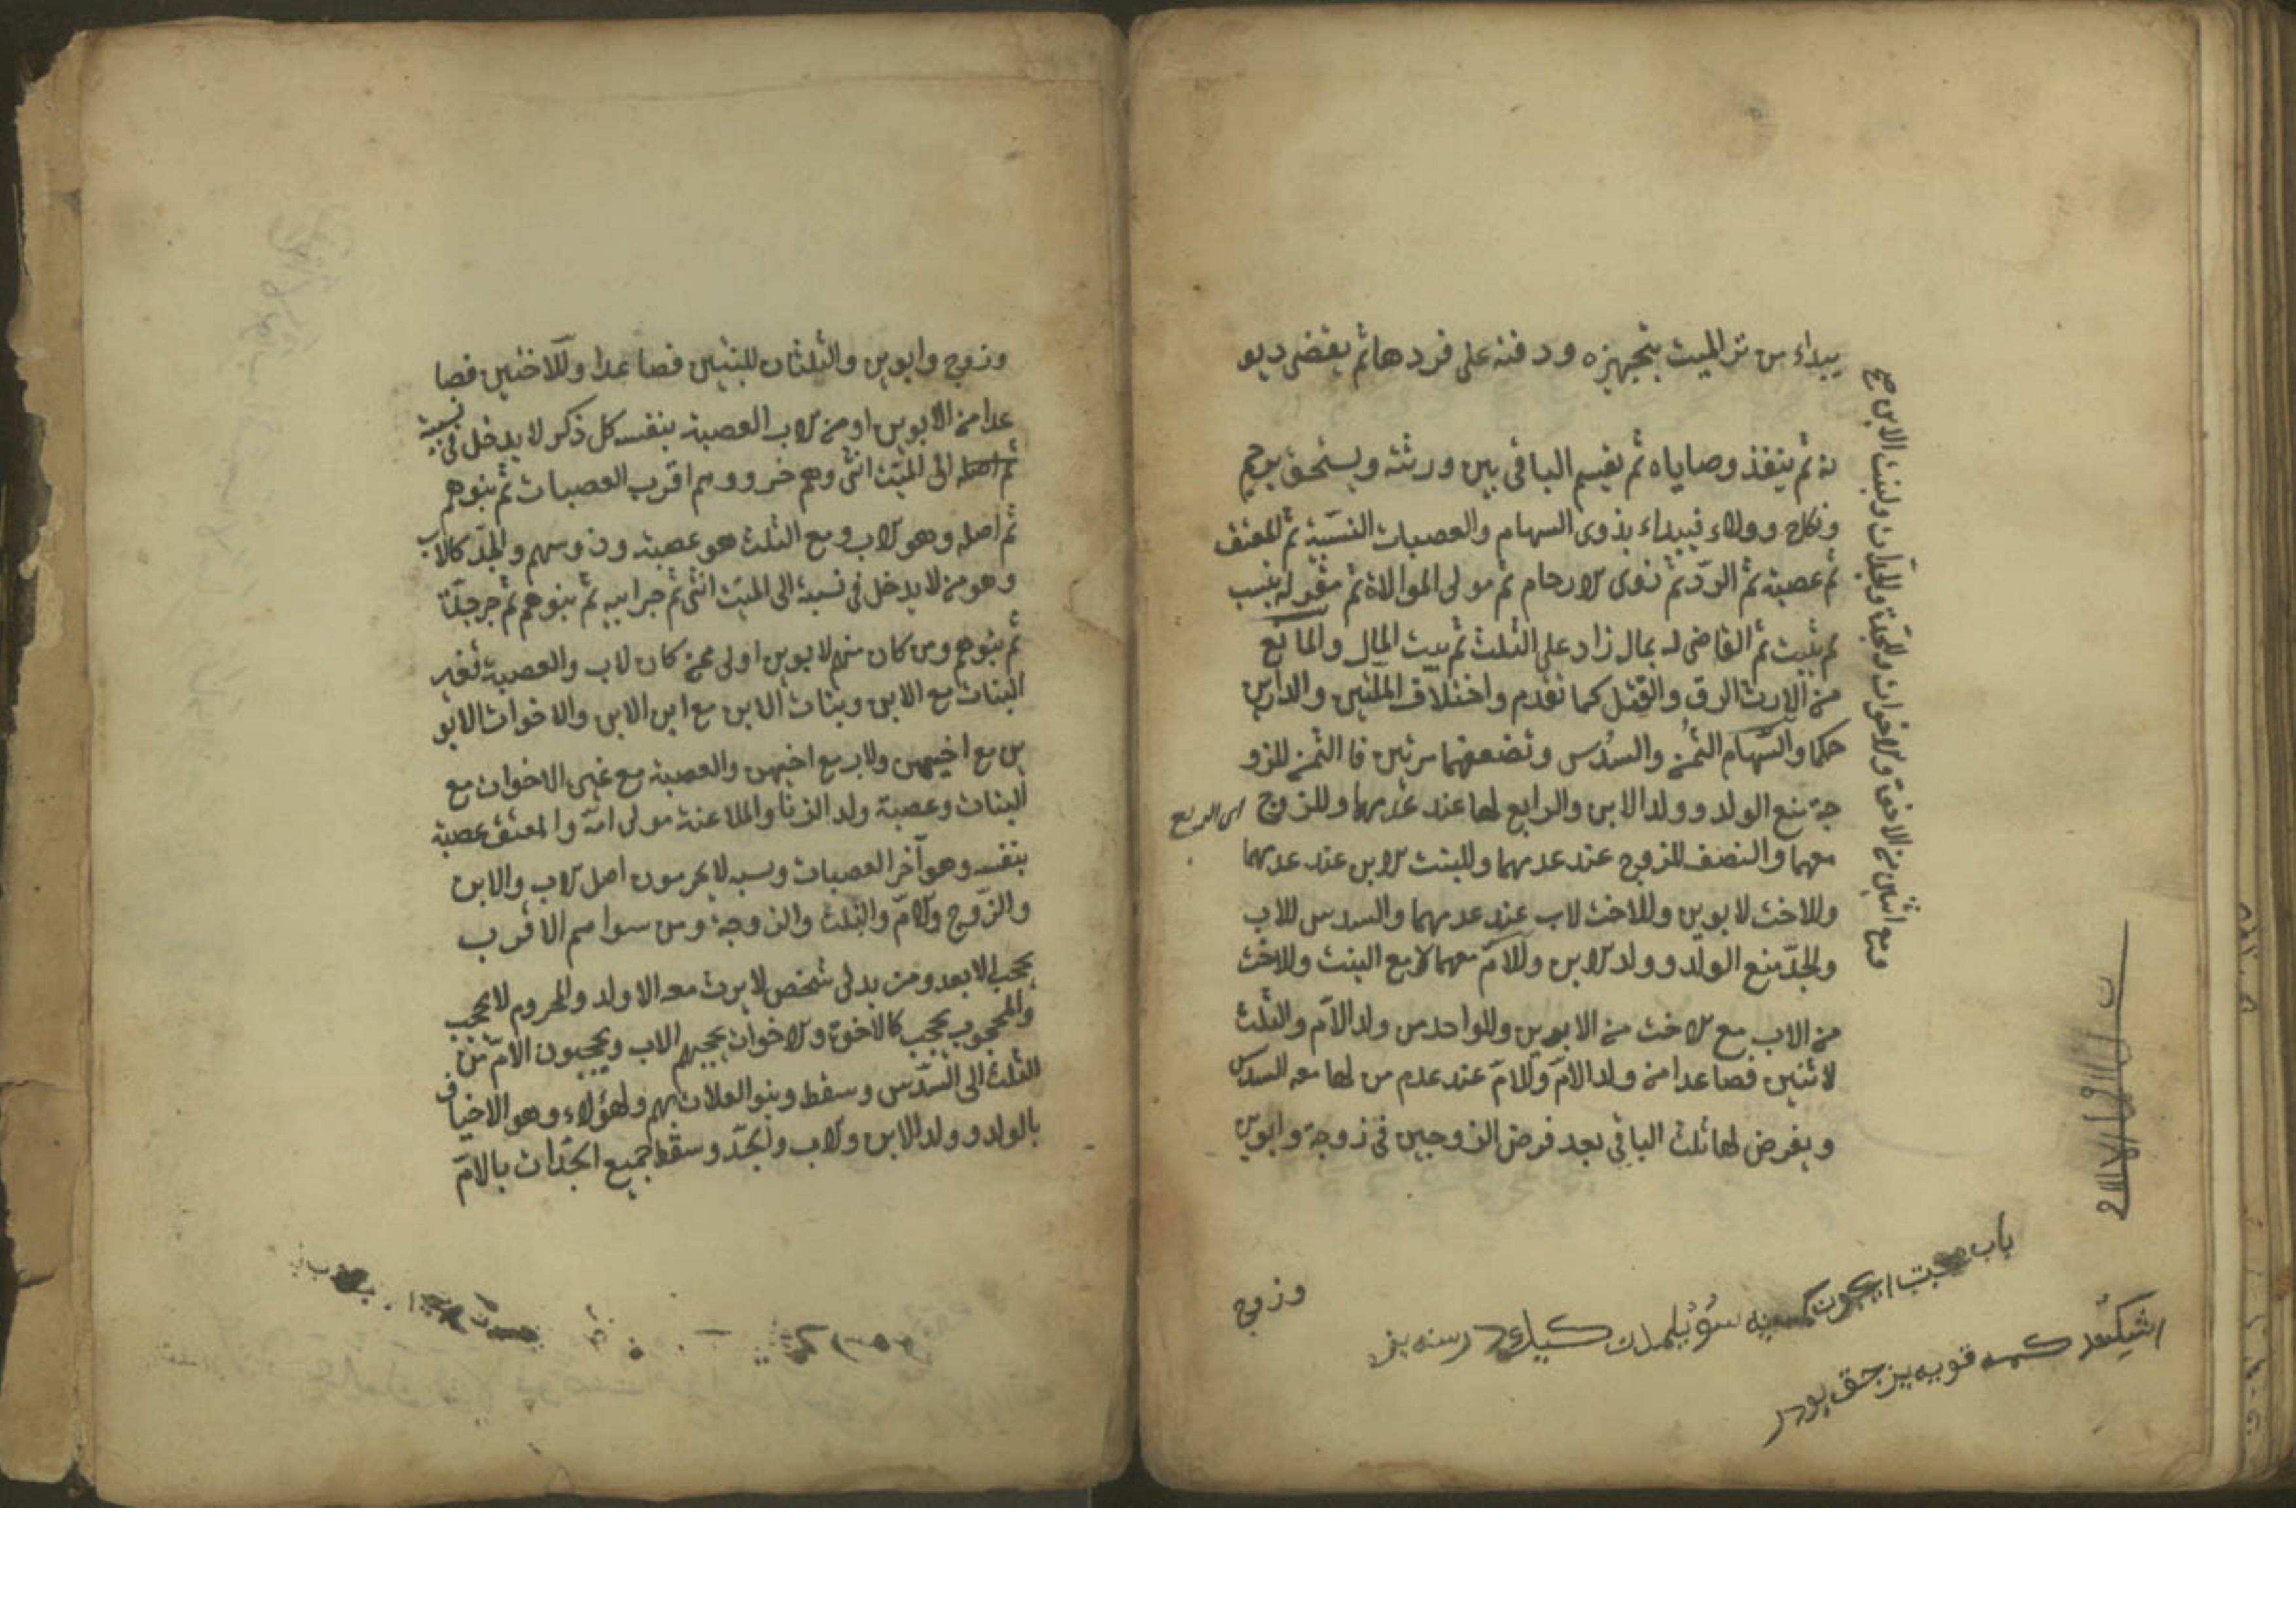 يبداء من تر الميت بتجهيزه ودفنه على قردها ثم يقضى ديو
نه ثم ينفذ وصاياه ثم يقسم الباقى بين ورثته ويستحق برحم
ونكاح وولاء فيبداء بذوى السهام والعصبات النسبية ثم المعتق
ثم عصبته ثم الردّ ثم ذوى الارحام ثم مولى الموالاة ثم مقر له بنسب
لم يثبت ثم القاضى له بمال زاد على الثلث ثم بيت المال والمانع
من الارث الرق والقتل كما تقدم واختلاف الملتين والدارين
حكما والسّهام الثمُن والسدُس وتضعفهما مرتين فا الثمن للزو
جة منع الولد وولد الابن والرابع لها عند عدمهما وللزوج
اى الربع
معهما والنصف للزوج عند عدمهما وللبنت الابن عند عدمهما
وللاخت لابوين وللاخت لاب عند عدمهما والسدس للاب
والجدّ منع الولد وولد الابن وللامّ معهما لا مع البنت وللاخت
من الاب مع الاخت من الابوين وللواحد من ولد الامّ والثلث
لاثنين فصاعدا من ولد الامّ وللامّ عند عدم من لها معه السدس
ويفرض لها ثلث الباقى بعد فرض الزوجين فى زوجة وابوين
ومع اثنين من الاخوة والاخوات وللجدّة والجدّات ولبنت الابن صح
وزوج
وزوج وابوين والثلثان للبنتين فصاعدا وللاختين فصا
عدا من الابوين او من الاب العصبة بنفسه كل ذكر لا يدخل فى نسبة
ثم اصله الى الميّت انثى وهم اقرب العصبات ثم بنوهم
ثم اصله وهو الاب ومع الثلث هو عصبة وذو سهم والجدّ كالاب
وهو من لا يدخل فى نسبة الى الميّت انثى ثم جزابيه ثم بنوهم ثم جزجدّنا
ثم بنوهم ومن كان منهم لابوين اولى ممن كان لاب والعصبة بغير
البنات مع الابن وبنات الابن مع ابن الابن والاخوات الابو
ين مع اخيهن ولاب مع اخيهن والعصبة مع غيرى الاخوات مع
البنات وعصبة ولد الزنا والملاعنة مولى امّه والمعتق عصبة
بنفسه وهو آخر العصبات وسبه لا يحرمون اصل الاب والابن
والزّوج والامّ والبنت والزوجة ومن سواهم الاقرب
يحجب الابعد ومن يدلى شخص لا يرث معه الا ولد والمحروم لا يحجب
والمحجوب يحجب كالاخوة والاخوات يحجبهم الاب ويحجبون الامّ من
الثلث الى السّدس وسقط وبنو العلات بهم ولهؤلاء وهو الاخياف
بالولد وولد الابن والاب والجدّ وسقط جميع الجدّات بالامّ